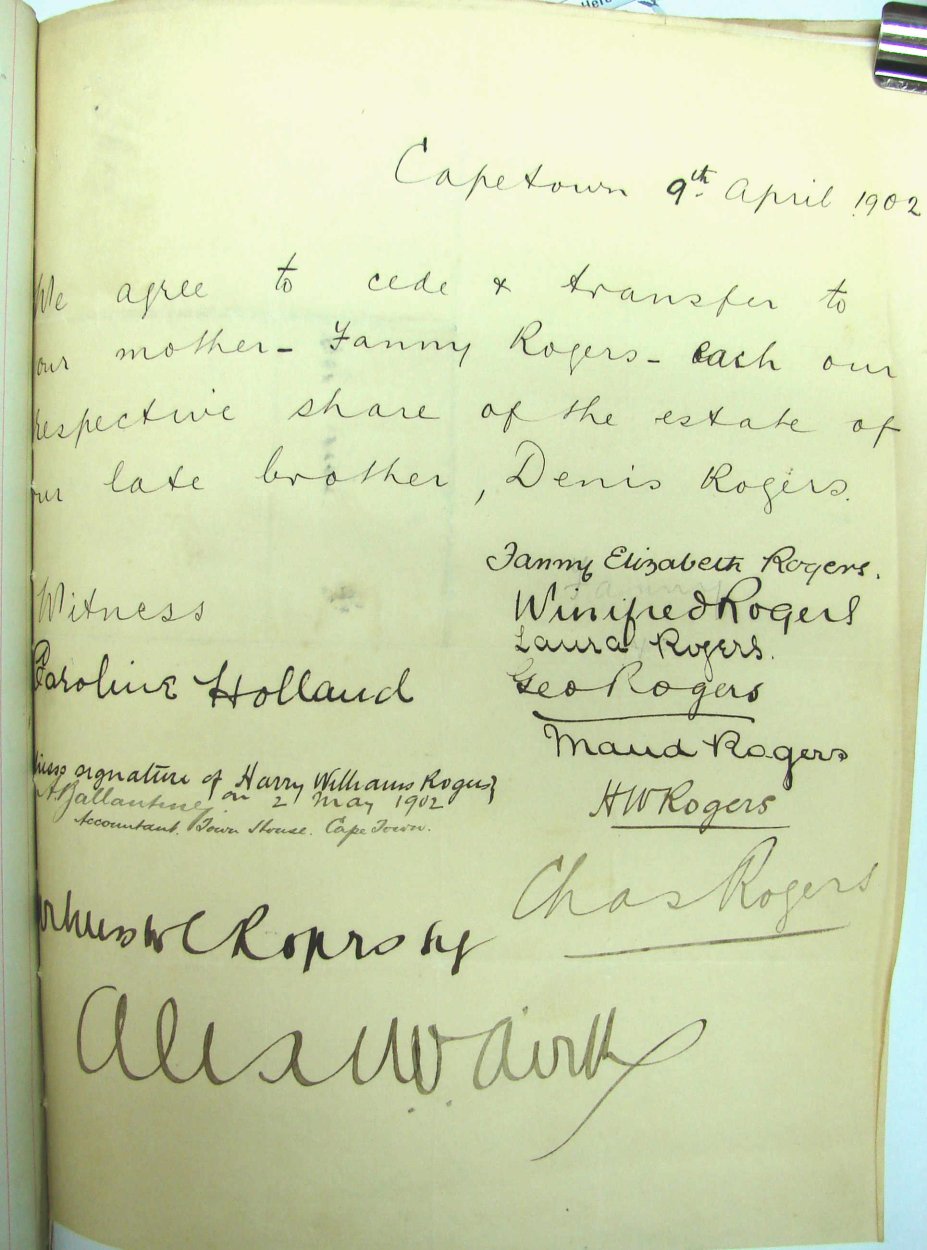 Here
Capetown 9th April 1902
We agree to cede & transfer to
our mother - Fanny Rogers - each our
respective share of the estate of
our late brother, Denis Rogers.
Fanny Elizabeth Rogers.
Witness
Winifred Rogers
Laura Rogers.
Caroline Holland
Geo Rogers
Maud Rogers
signature of Harry Williams Rogers
A Ballantine on 2 May 1902
Accountant. Town House. Cape Town.
H W Rogers
Chas Rogers
Witness to C Rogers sig
Alex W